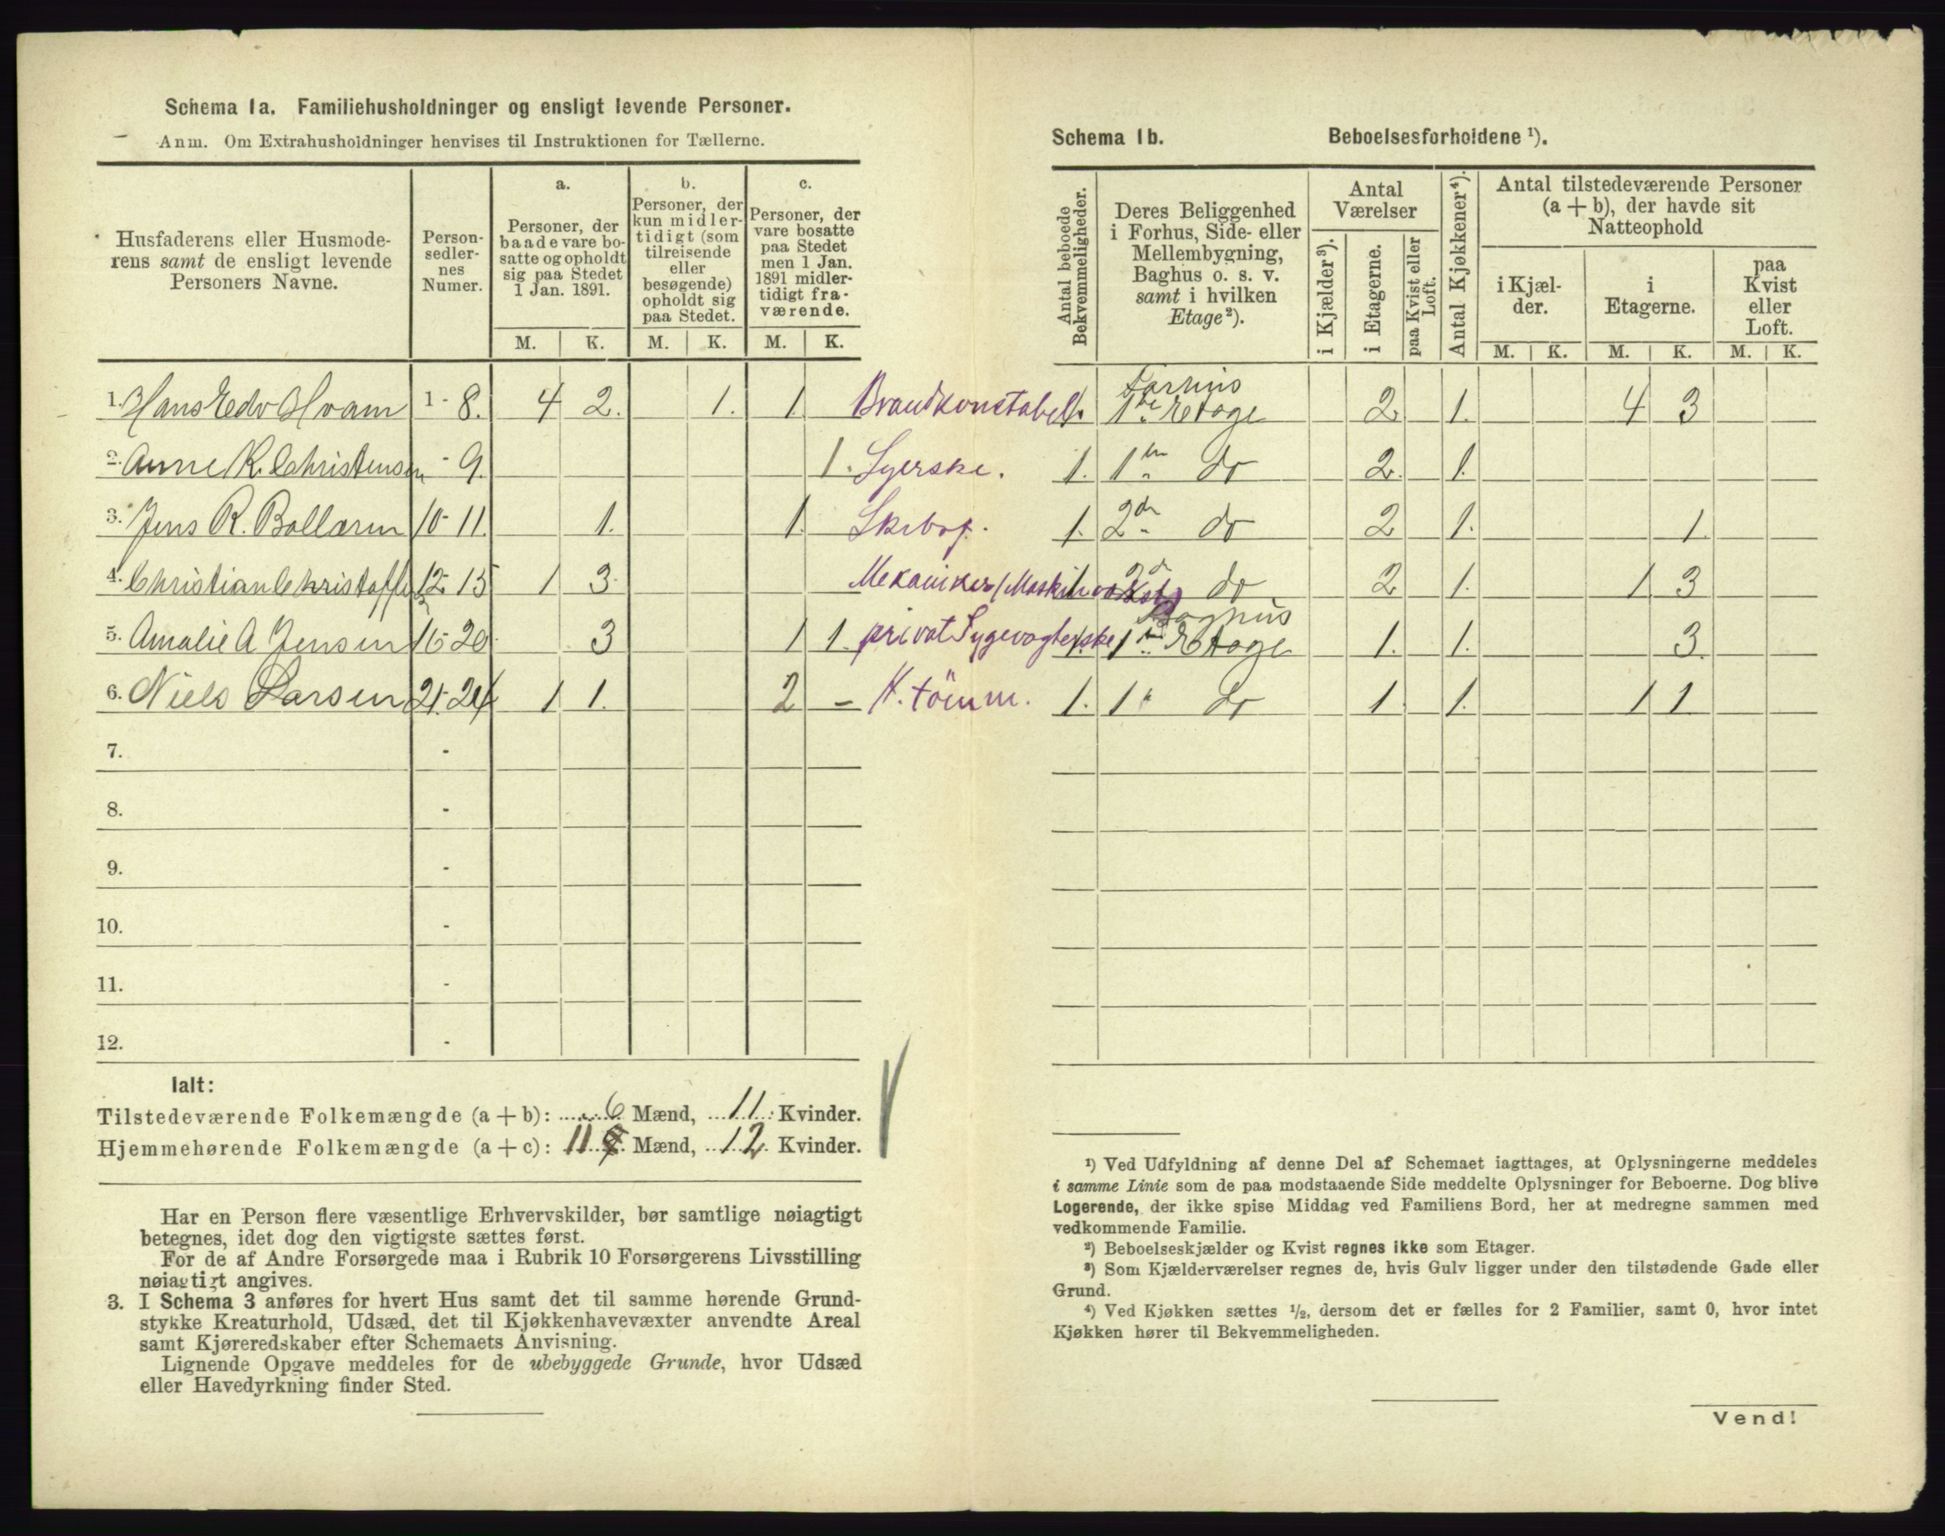 Schema 1a. Familiehusholdninger og ensligt levende Personer.
Anm. Om Extrahusholdninger henvises til Instruktionen for Tællerne.
Husfaderens eller Husmoderens samt de ensligt levende Personers Navne.
Personsedlernes Numer.
a. Personer, der baade vare bosatte og opholdt sig paa Stedet 1 Jan. 1891.
b. Personer, der kun midlertidigt (som tilreisende eller besøgende) opholdt sig paa Stedet.
c. Personer, der vare bosatte paa Stedet men 1 Jan. 1891 midlertidigt fraværende.
M. K. M. K. M. K.
1. Hans Edv Hvam 1 - 8. 4 2. 1. 1 Brandkonstabel
2. Anne K. Christensen - 9. 1. Syerske.
3. Jens R. Bollærn 10 - 11. 1. 1.
4. Christian Christoffs 12 - 15 1 3. Mekaniker
5. Amalie A Jensen 16 - 20 3 1 1. privat Sygevogterske
6. Niels Larsen 21 - 24 1 1. 2 - K. tömm.
7. -
8. -
9. -
10. -
11. -
12. -
Ialt:
Tilstedeværende Folkemængde (a + b): 6 Mænd, 11 Kvinder.
Hjemmehørende Folkemængde (a + c): 11 Mænd, 12 Kvinder.
Har en Person flere væsentlige Erhvervskilder, bør samtlige nøiagtigt
betegnes, idet dog den vigtigste sættes først.
For de af Andre Forsørgede maa i Rubrik 10 Forsørgerens Livsstilling
nøiagtigt angives.
3. I Schema 3 anføres for hvert Hus samt det til samme hørende Grund-
stykke Kreaturhold, Udsæd, det til Kjøkkenhavevæxter anvendte Areal
samt Kjøreredskaber efter Schemaets Anvisning.
Lignende Opgave meddeles for de ubebyggede Grunde, hvor Udsæd
eller Havedyrkning finder Sted.
Schema 1b. Beboelsesforholdene ¹).
Antal beboede Bekvemmeligheder.
Deres Beliggenhed i Forhus, Side- eller Mellembygning, Baghus o. s. v. samt i hvilken Etage²).
Antal Værelser
i Kjælder³).
i Etagerne.
paa Kvist eller Loft.
Antal Kjøkkener⁴).
Antal tilstedeværende Personer (a + b), der havde sit Natteophold
i Kjælder.
i Etagerne.
paa Kvist eller Loft.
M. K. M. K. M. K.
1. Forhus 1ste Etage 2 1. 4 3
1. 1ste do 2. 1.
1. 2den do 2 1. 1.
1 2d do 2 1. 1 3
1. Baghus 1ste Etage 1. 1. 3.
1. 1ste do 1 1. 1 1
¹) Ved Udfyldning af denne Del af Schemaet iagttages, at Oplysningerne meddeles
i samme Linie som de paa modstaaende Side meddelte Oplysninger for Beboerne. Dog blive
Logerende, der ikke spise Middag ved Familiens Bord, her at medregne sammen med
vedkommende Familie.
²) Beboelseskjælder og Kvist regnes ikke som Etager.
³) Som Kjælderværelser regnes de, hvis Gulv ligger under den tilstødende Gade eller
Grund.
⁴) Ved Kjøkken sættes ½, dersom det er fælles for 2 Familier, samt 0, hvor intet
Kjøkken hører til Bekvemmeligheden.
Vend!